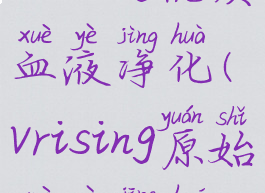 xuè yè jìng huà
血液净化(
yuán shǐ
vrising原始